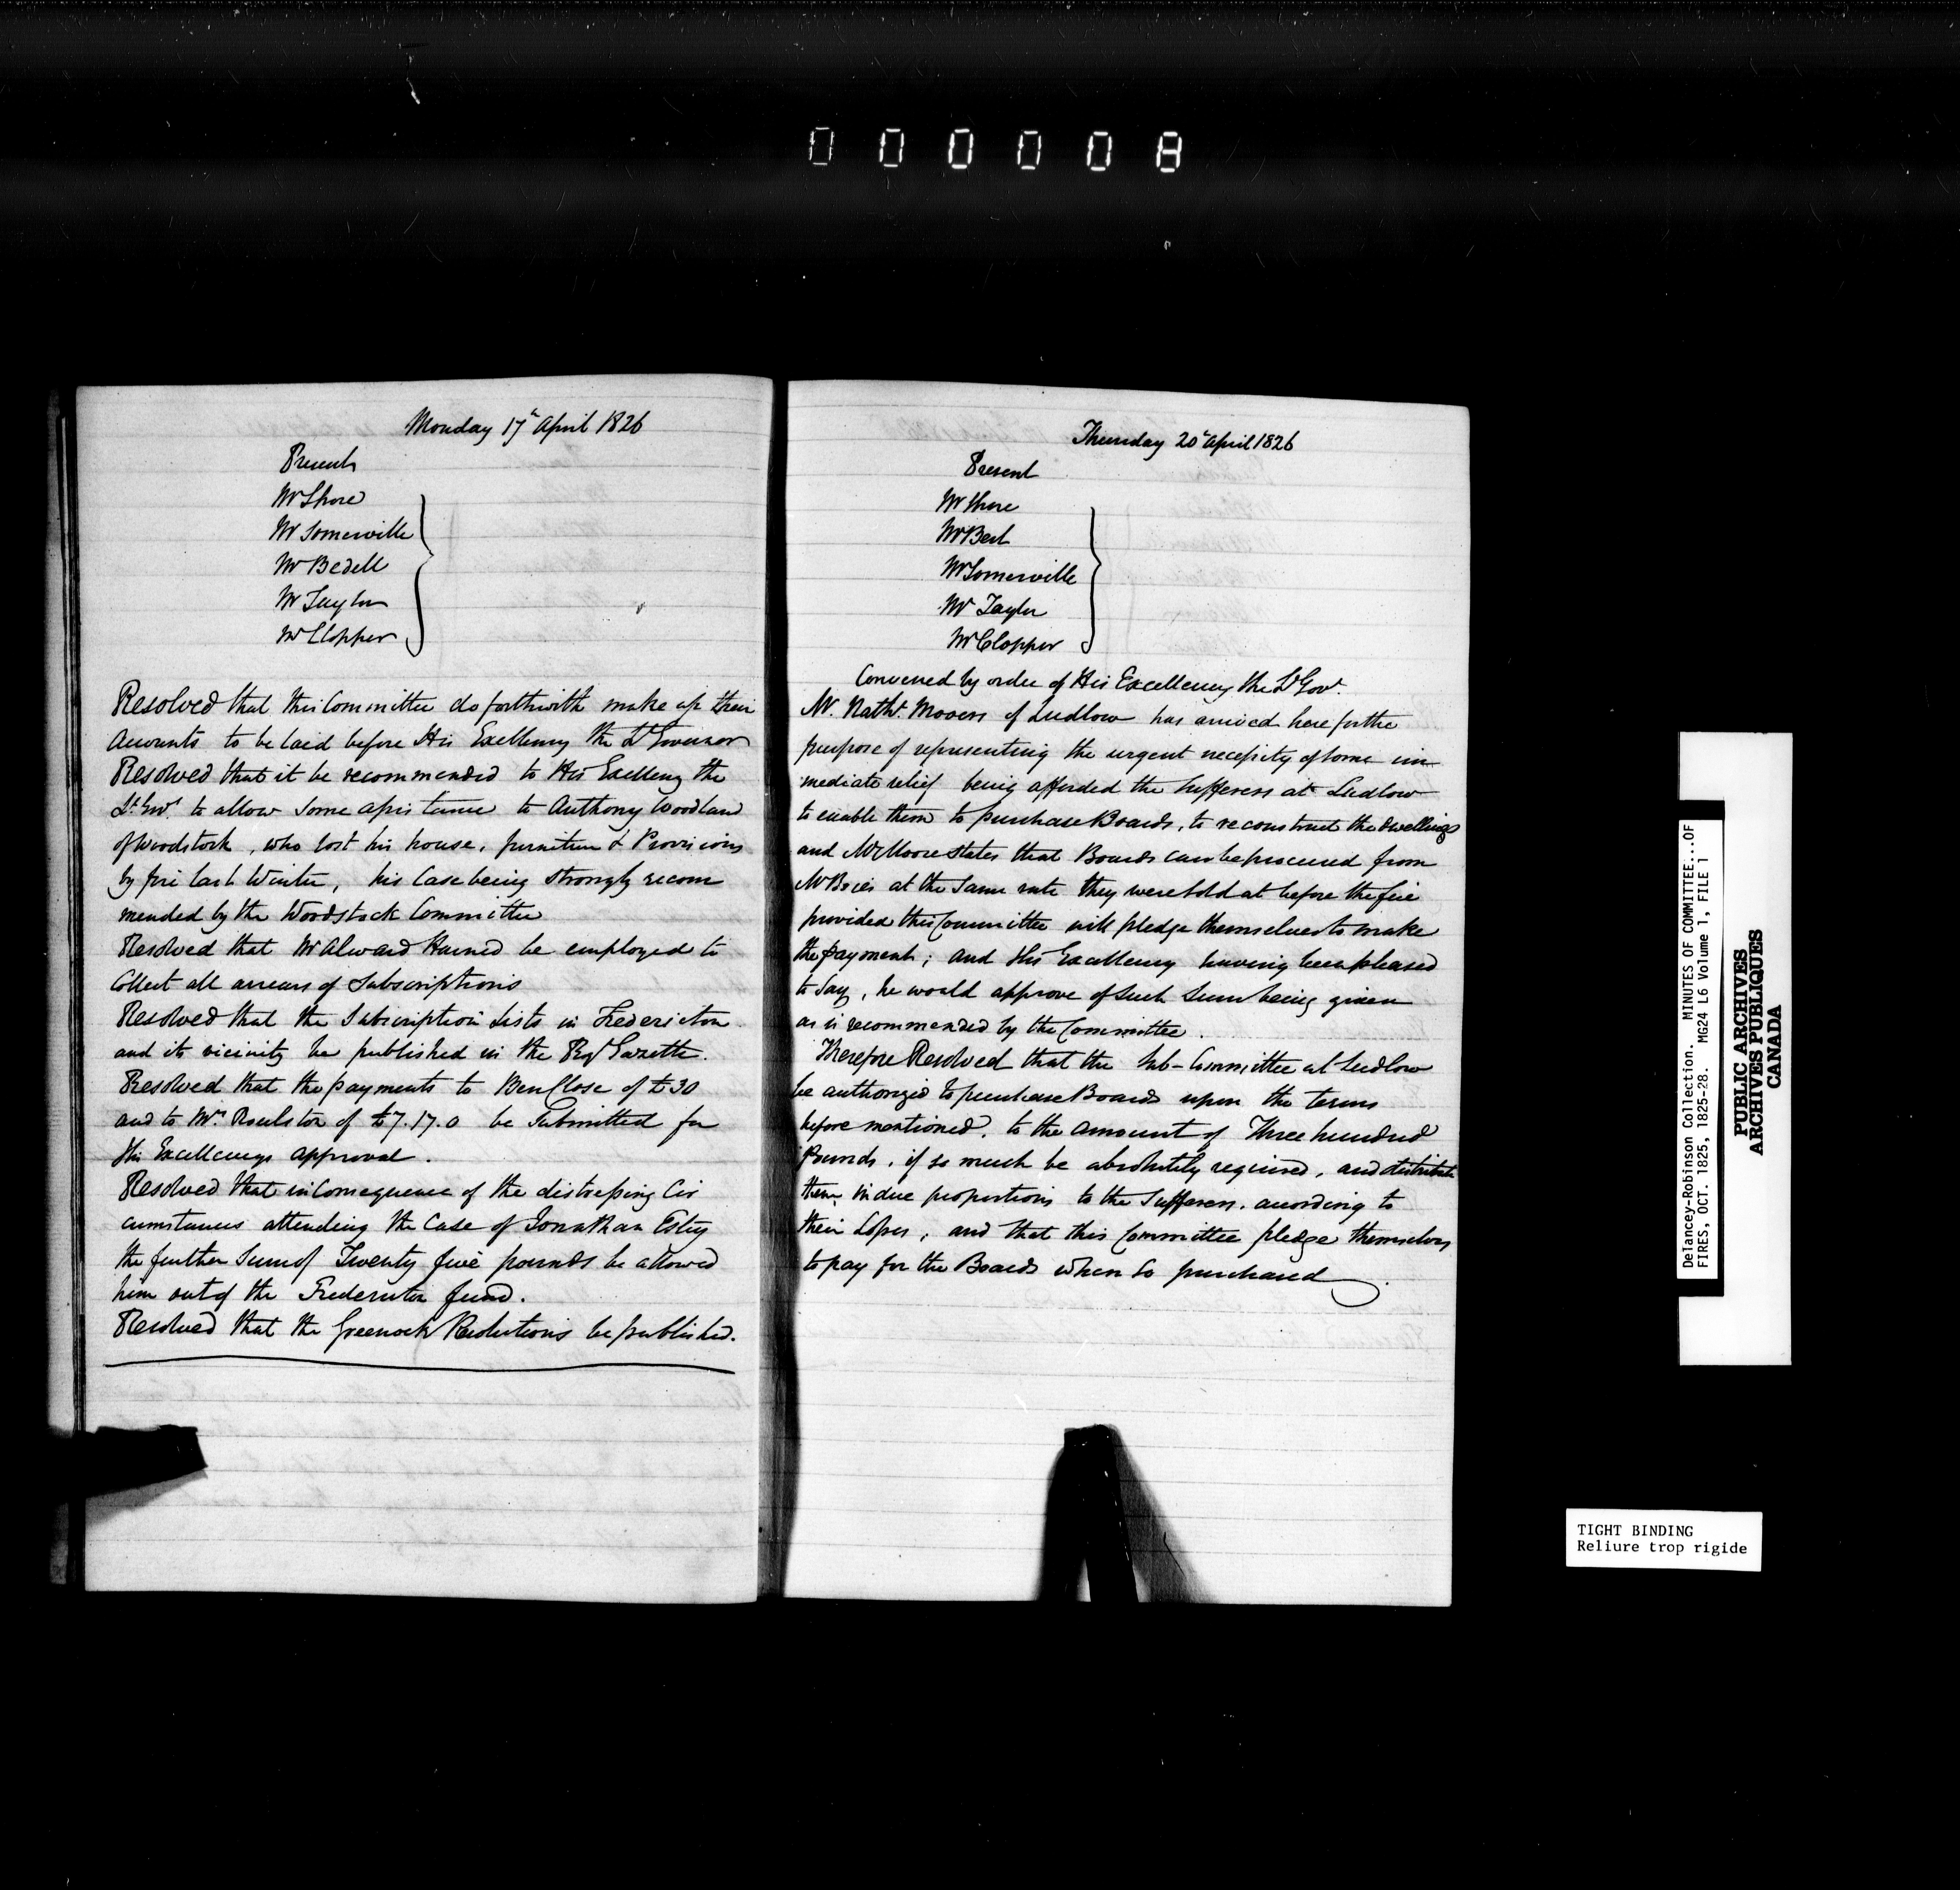 000008
Monday 17th April 1826
Present
Mr Shore
Mr Somerville
Mr Bedell
Mr Taylor
Mr Clopper
Resolved that this Committee do forthwith make up their
Accounts to be laid before His Excellency the Lt Governor
Resolved that it be recommended to His Excellency the
Lt Govr. to allow some assistance to Anthony Woodland
of Woodstock, who lost his house, furniture & Provisions
by fire last Winter, his Case being strongly recom
mended by the Woodstock Committee
Resolved that Mr Alward Harned be employed to
Collect all arrears of Subscriptions
Resolved that the Subscription Lists in Fredericton
and its vicinity be published in the Royl Gazette.
Resolved that the payments to Ben Close of £30
and to Mrs. Roulston of £7.17.0 be Submitted for
His Excellencys approval.
Resolved that in Consequence of the distressing Cir
cumstances attending the Case of Jonathan Estey
the further Sum of Twenty five pounds be allowed
him out of the Fredericton fund.
Resolved that the Greenock Resolutions be published.
Thursday 20th April 1826
Present
Mr Shore
Mr Best
Mr Somerville
Mr Taylor
Mr Clopper
Convened by order of His Excellency the Lt Govr.
Mr. Nathl. Moores of Ludlow has arrived here for the
purpose of representing the urgent necessity of some im
mediate relief being afforded the Sufferers at Ludlow
to enable them to purchase Boards, to reconstruct the dwellings
and Mr Moore states that Boards can be procured from
Mr at the Same rate they were sold at before the fire
provided this Committee will pledge themselves to make
the payment; and His Excellency having been pleased
to Say, he would approve of Such Sum being given
as is recommended by the Committee.
Therefore Resolved that the Sub-Committee at Ludlow
be authorized to purchase Boards upon the terms
before mentioned, to the amount of Three hundred
Pounds, if so much be absolutely required, and distribute
them in due proportions to the Sufferers, according to
their Losses, and that this Committee pledge themselves
to pay for the Boards when so purchased.
Delancey-Robinson Collection. MINUTES OF COMMITTEE...OF
FIRES, OCT. 1825, 1825-28. MG24 L6 Volume 1, FILE 1
PUBLIC ARCHIVES
ARCHIVES PUBLIQUES
CANADA
TIGHT BINDING
Reliure trop rigide